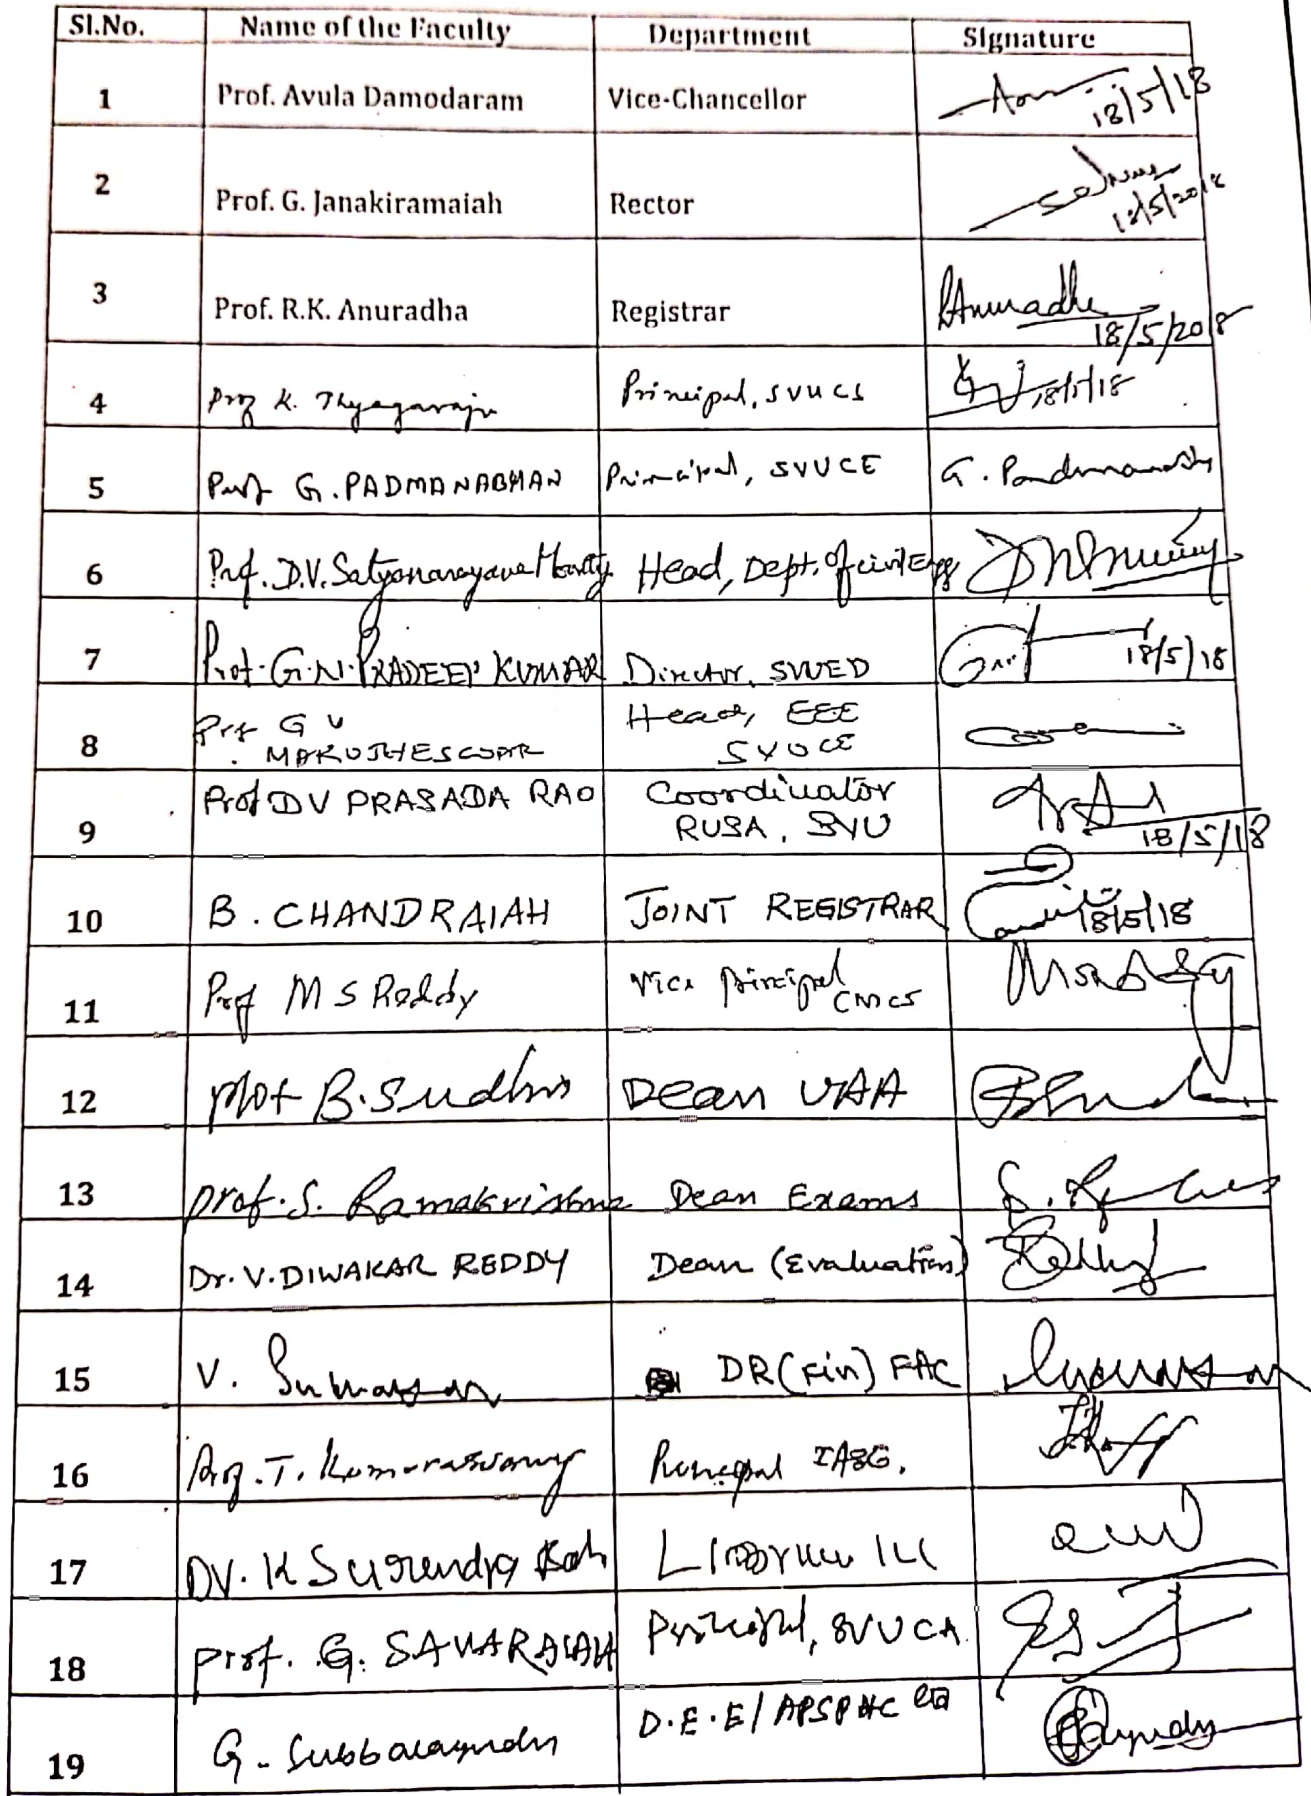 Sl.No. Name of the Faculty Department Signature
1 Prof. Avula Damodaram Vice-Chancellor 18/5/18
2 Prof. G. Janakiramaiah Rector 18/5/2018
3 Prof. R.K. Anuradha Registrar RAnuradha 18/5/2018
4 Prof K. Thyagaraju Principal, SVUCS 18/5/18
5 Prof G. PADMANABHAN Principal, SVUCE G. Padmanabh
6 Prof. D.V. Satyanarayana Moorty Head, Dept. of civil Engg,
7 Prof. G.N. PRADEEP KUMAR Director, SVUED 18/5/18
8 Prof G V Head, EEE
MARUTHESWAR SVUCE
9 Prof DV PRASADA RAO Coordinator
RUSA, SVU 18/5/18
10 B. CHANDRAIAH JOINT REGISTRAR 18/5/18
11 Prof M S Reddy Vice Principal
CMCS
12 Prof B. Sudhir Dean UAA
13 Prof. S. Ramakrishna Dean Exams
14 Dr. V. DIWAKAR REDDY Dean (Evaluation) Reddy
15 V. DR (Fin) FAC
16 Prof. T. Kumaraswamy Principal
17 Dr. K Surendra
18 Prof. G. SAVARAIAH Principal, SVUCA
19 G. Subbarayudu D.E.E/